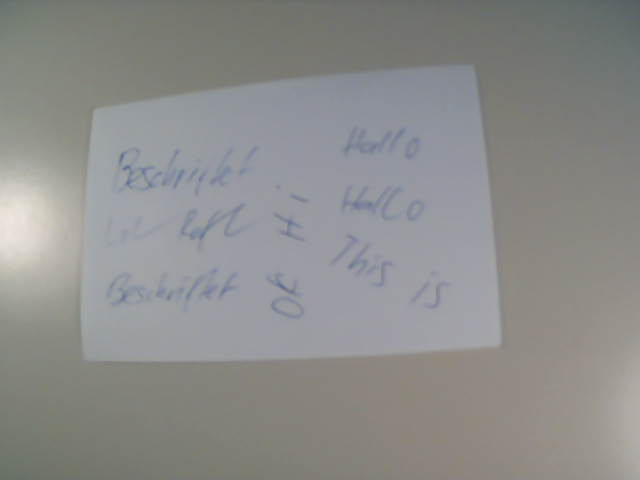 Beschriftet
Beschriftet
Hi
Ok
Hallo
Hallo
This is